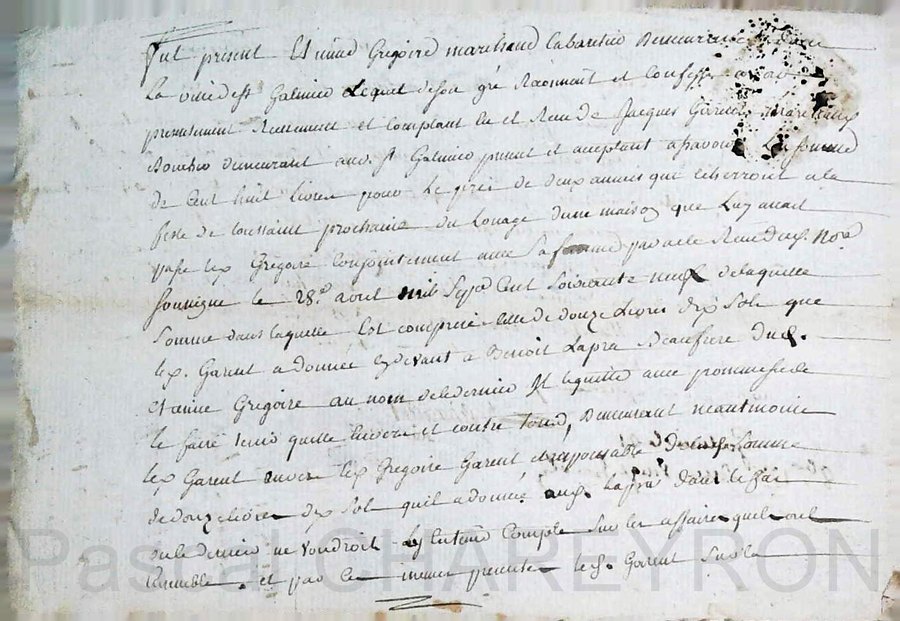 fut present Etienne Gregoire marchand Cabartier Demeurant
La ville de st Galmier Lequel de son gré Reconnoit et Confesse avoir
presentement Reellement et comptant Eu et Receu de Jacques Garent marchand
Boucher demeurant aud. st Galmier present et acceptant assavoir La somme
de Cent huit livres pour Le prix de deux années qui echerront a la
feste de toussaint prochaine du Louage dune maison que Luy avait
passé led Gregoire Conjointement avec sa femme par acte Receu dud. No.re
soussigné le 28.e avril mil Sept Cent soixante neuf de laquelle
somme dans laquelle Est comprise celle de douze Livres dix sols que
led. Garent a donnée cy devant a Benoit Lapra Beaufrere dud.
Etienne Gregoire au nom de ce dernier Il le quitte avec promesse de
le faire tenir quitte Envers et contre tous, Demeurant neantmoins
led Garent envers led Gregoire Garent et responsable de somme
de douze livres dix sols quil a donnée aud. Lapra dans le Cas
ou ce dernier ne voudroit Entrer Compte sur les affaires quils ont
Ensemble. et par Ces memes presentes led. Garent sur la
Pascal CHAREYRON